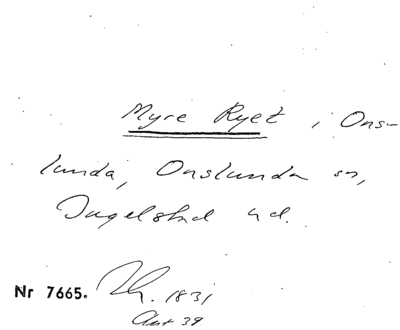 Myre Ryet i Ons-
lunda, Onslunda sn,
Ingelstad hd.
Nr 7665. 1831